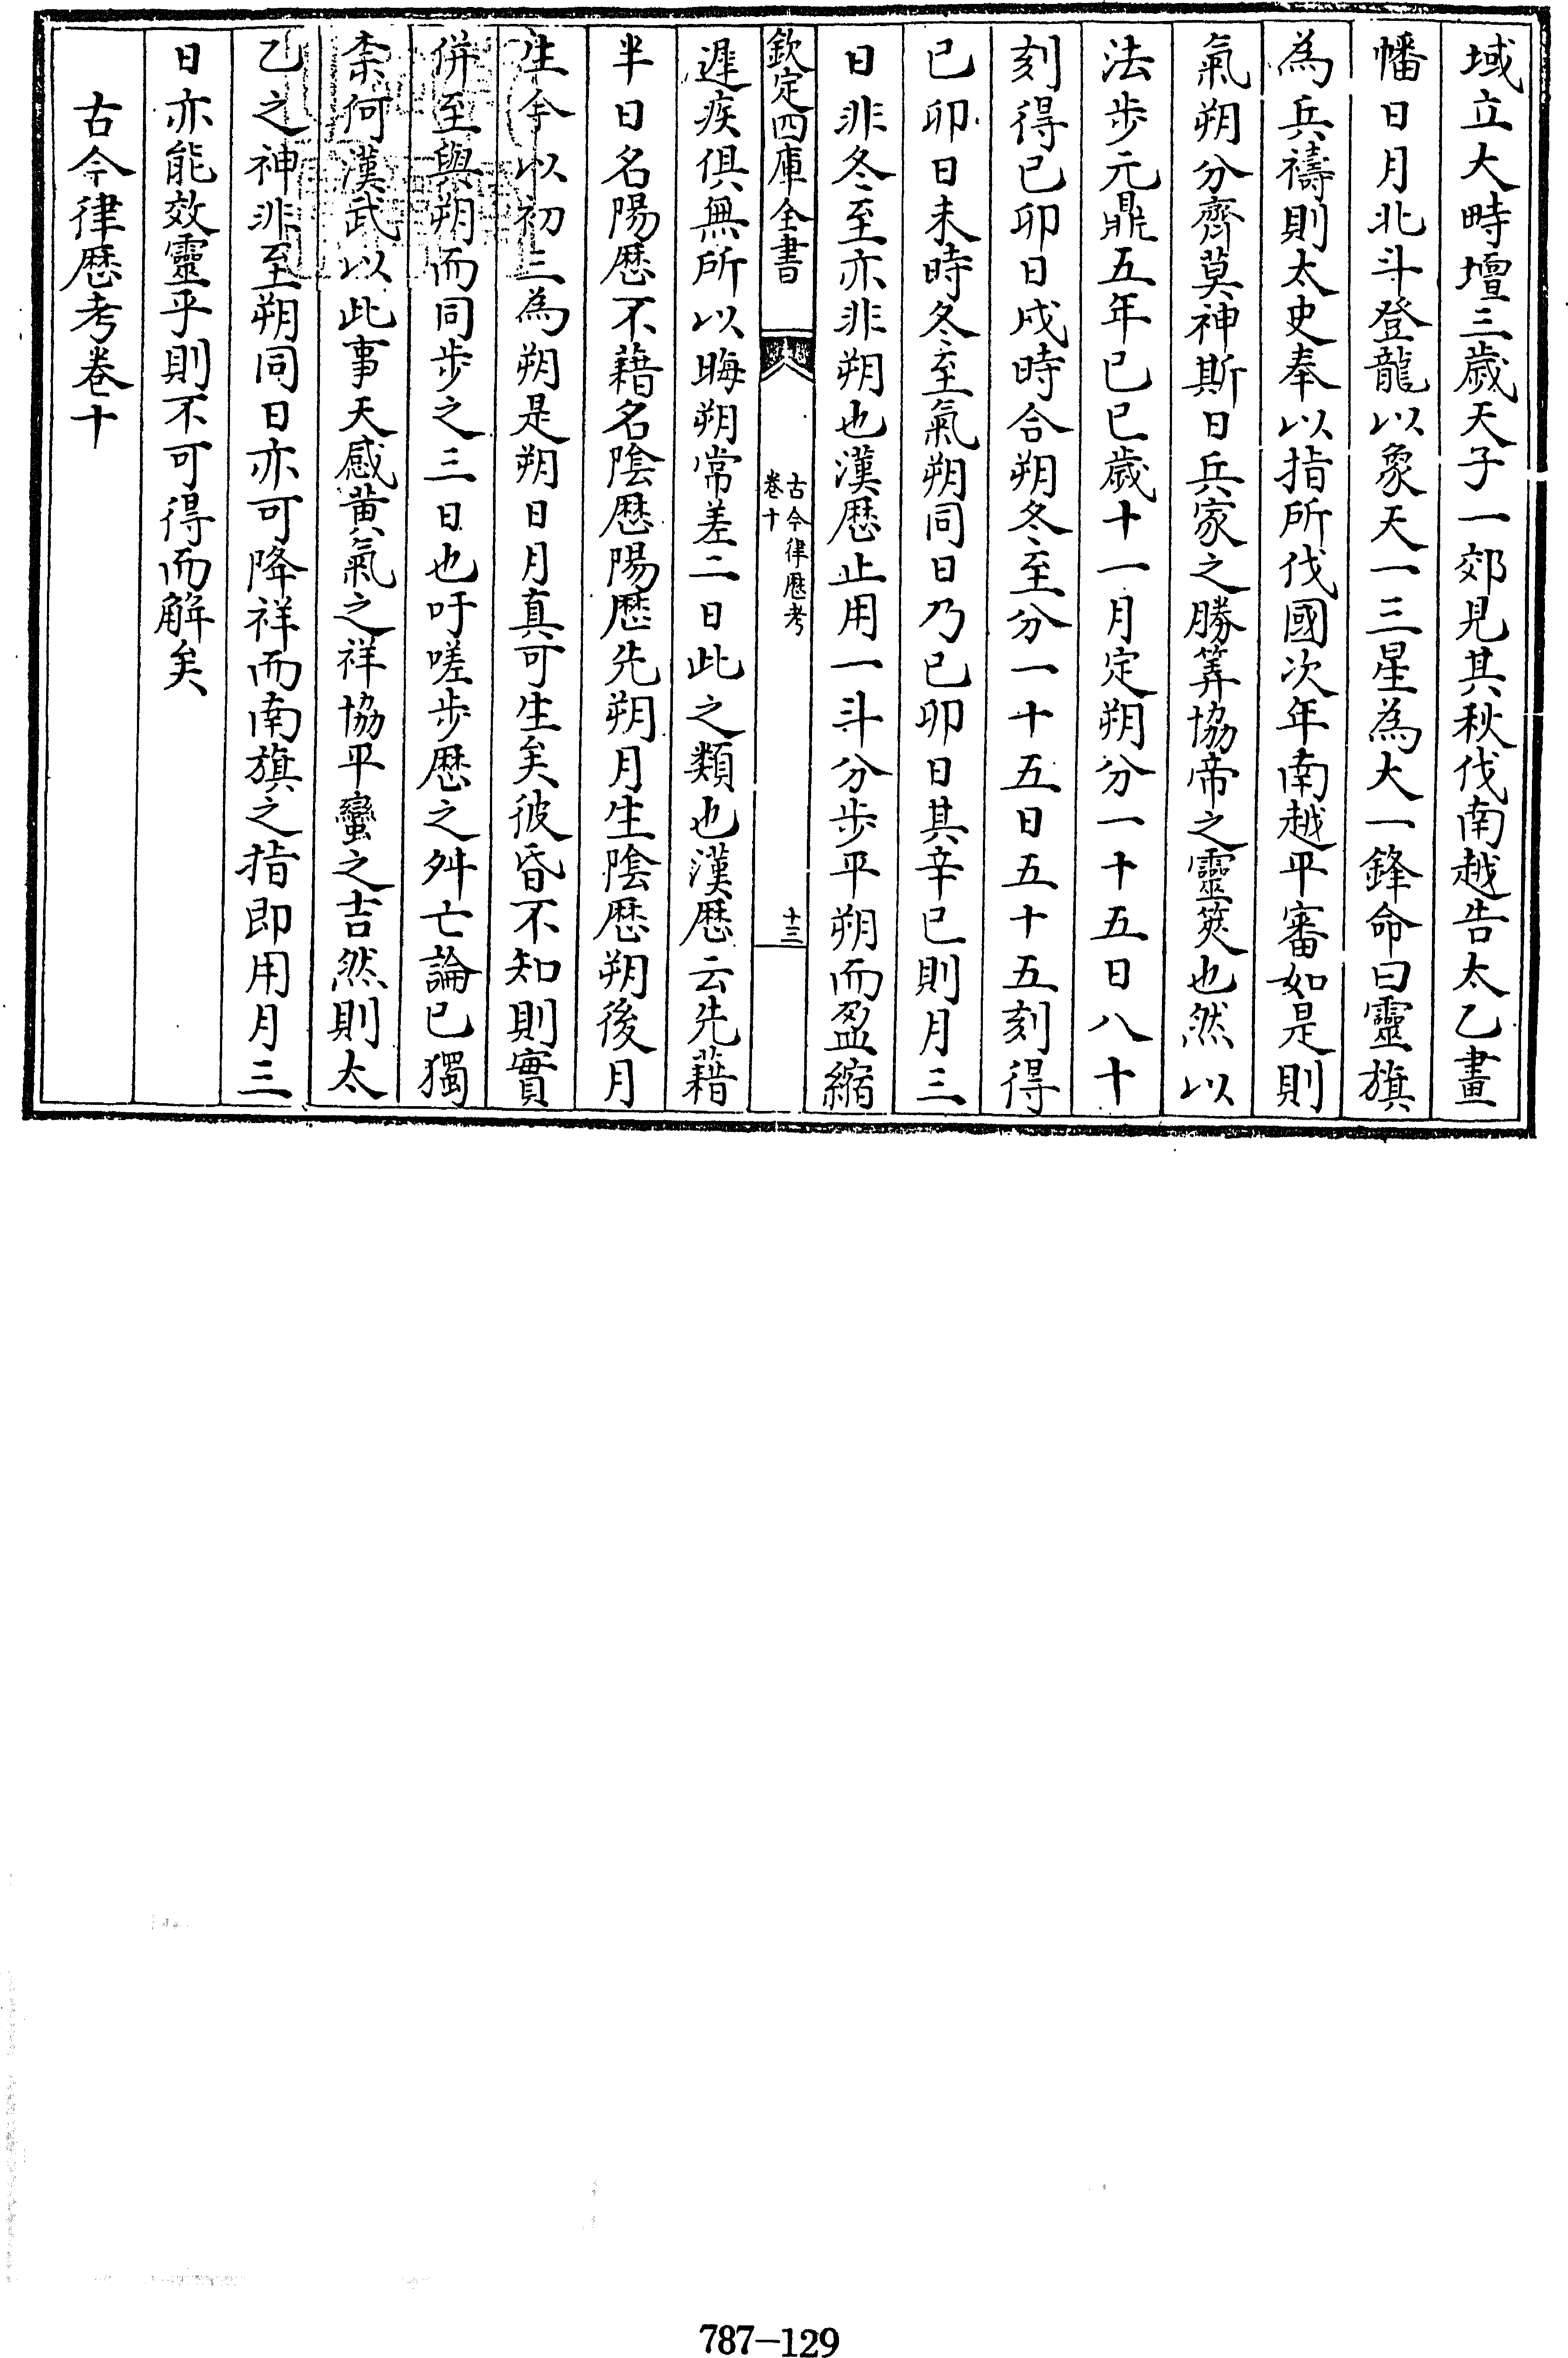 域立大畤壇三歲天子一郊見其秋伐南越告太乙畫
幡日月北斗登龍以象天一三星為大一鋒命曰靈旗
為兵禱則太史奉以指所伐國次年南越平審如是則
氣朔分齊莫神斯日兵家之勝筭協帝之靈筴也然以
法步元鼎五年已巳歲十一月定朔分一十五日八十
刻得已卯日戍時合朔冬至分一十五日五十五刻得
已卯日未時冬至氣朔同日乃已卯日其辛巳則月三
日非冬至亦非朔也漢厯止用一斗分步平朔而盈縮
欽定四庫全書
古今律厯考
卷十
十三
遲疾俱無所以晦朔常差二日此之類也漢厯云先藉
半日名陽厯不藉名陰厯陽厯先朔月生陰厯朔後月
生今以初三為朔是朔日月真可生矣彼昏不知則實
併至與朔而同步之三日也吁嗟步厯之舛亡論已獨
柰何漢武以此事天感黃氣之祥協平蠻之吉然則太
乙之神非至朔同日亦可降祥而南旗之指即用月三
日亦能效靈乎則不可得而解矣
古今律厯考卷十
787-129